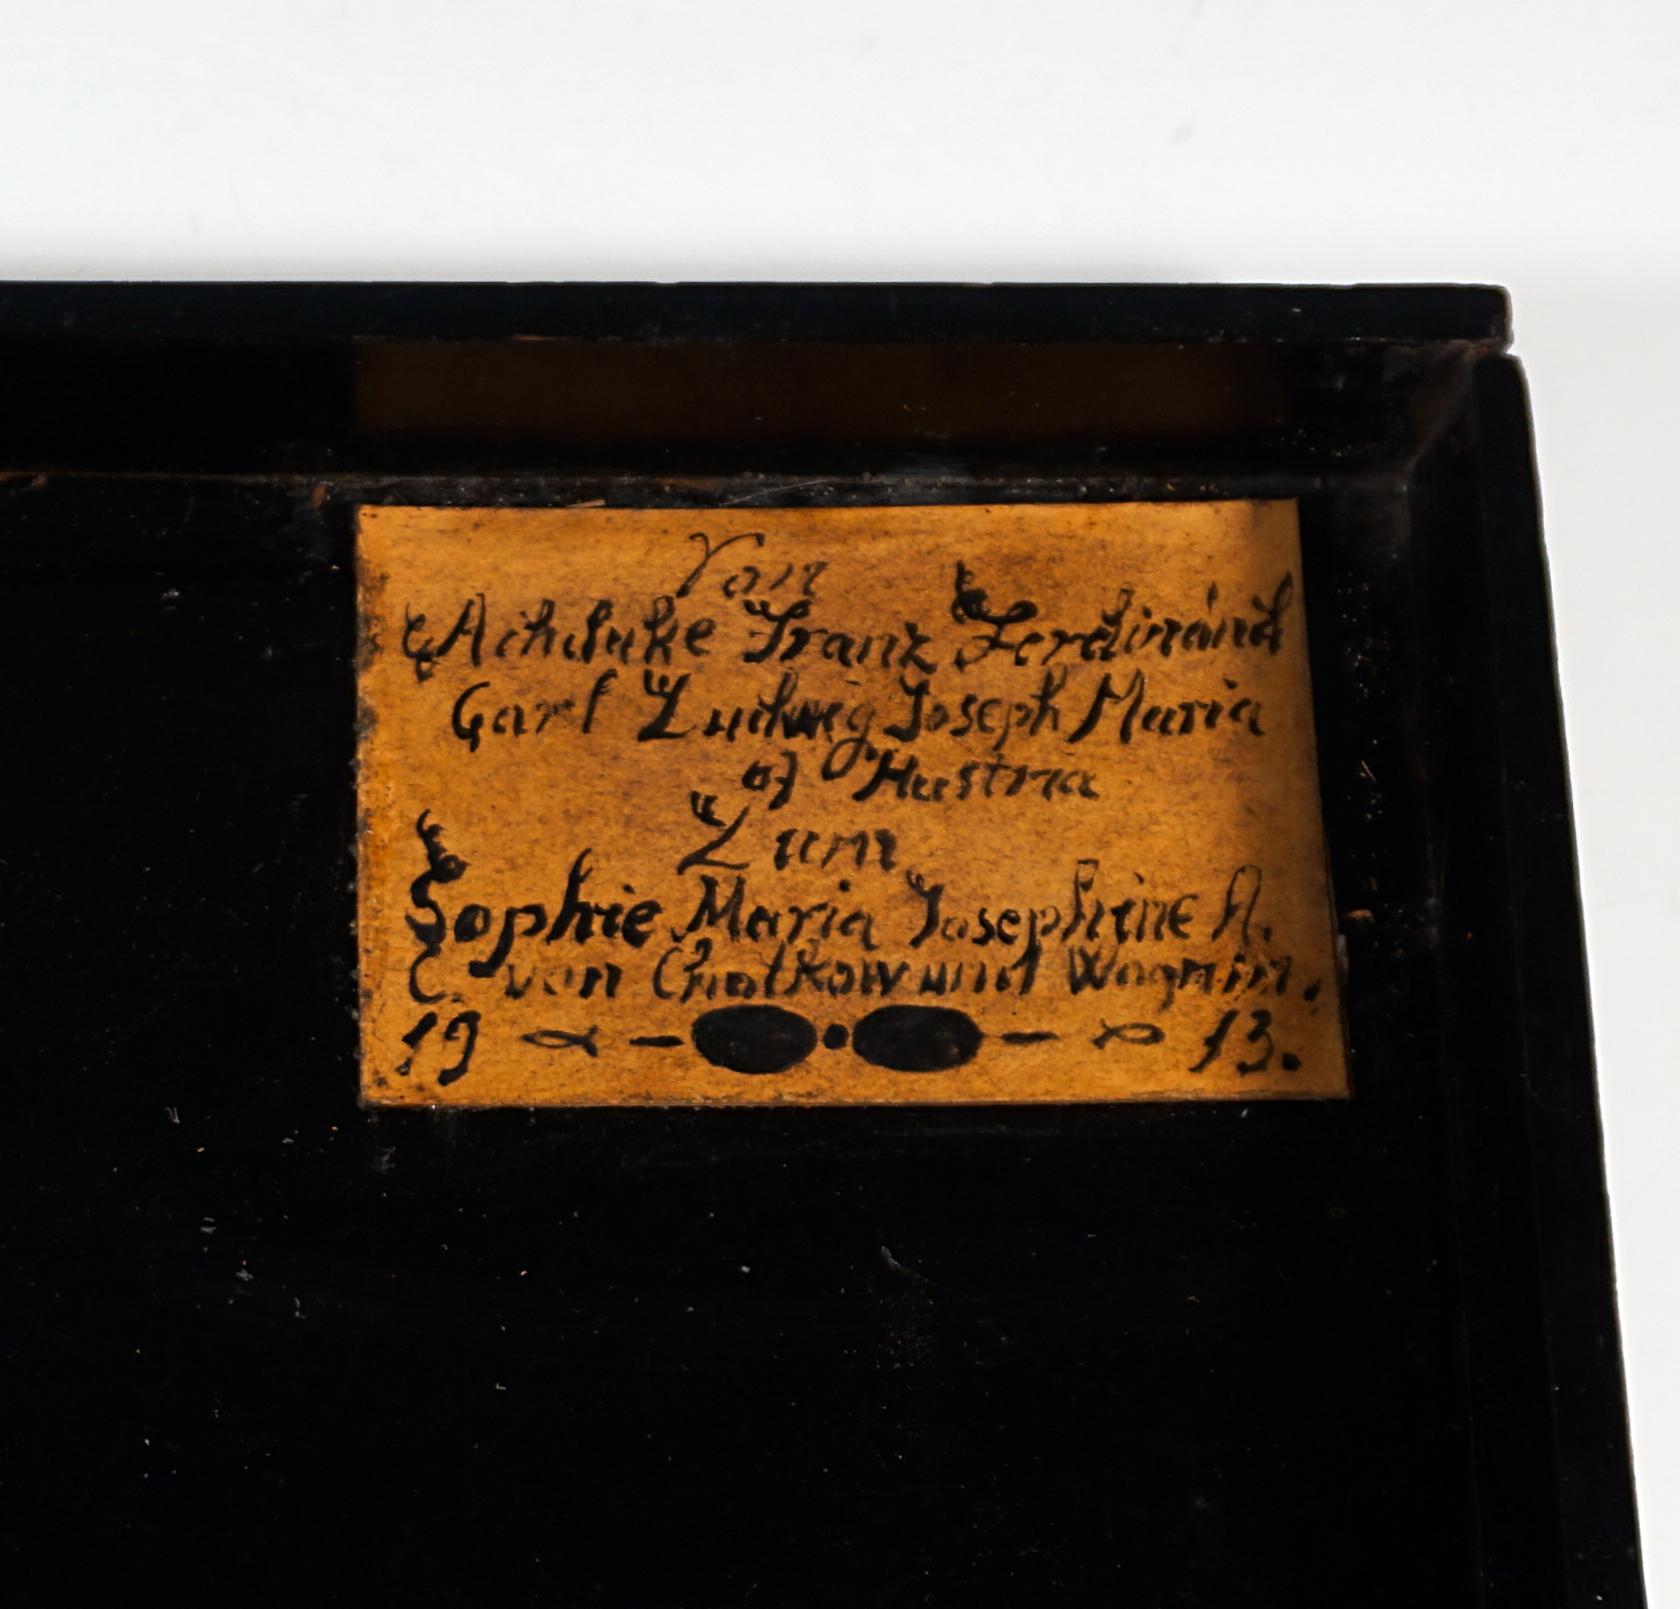 Von
Achduke Franz Ferdinánd
Carl Ludwig Joseph Maria
of Austria
Zum
Sophie Maria Josephine A.
C. von Chotkow und Wognin.
19 13.